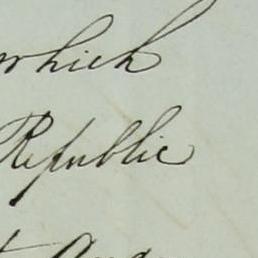 which
Republic